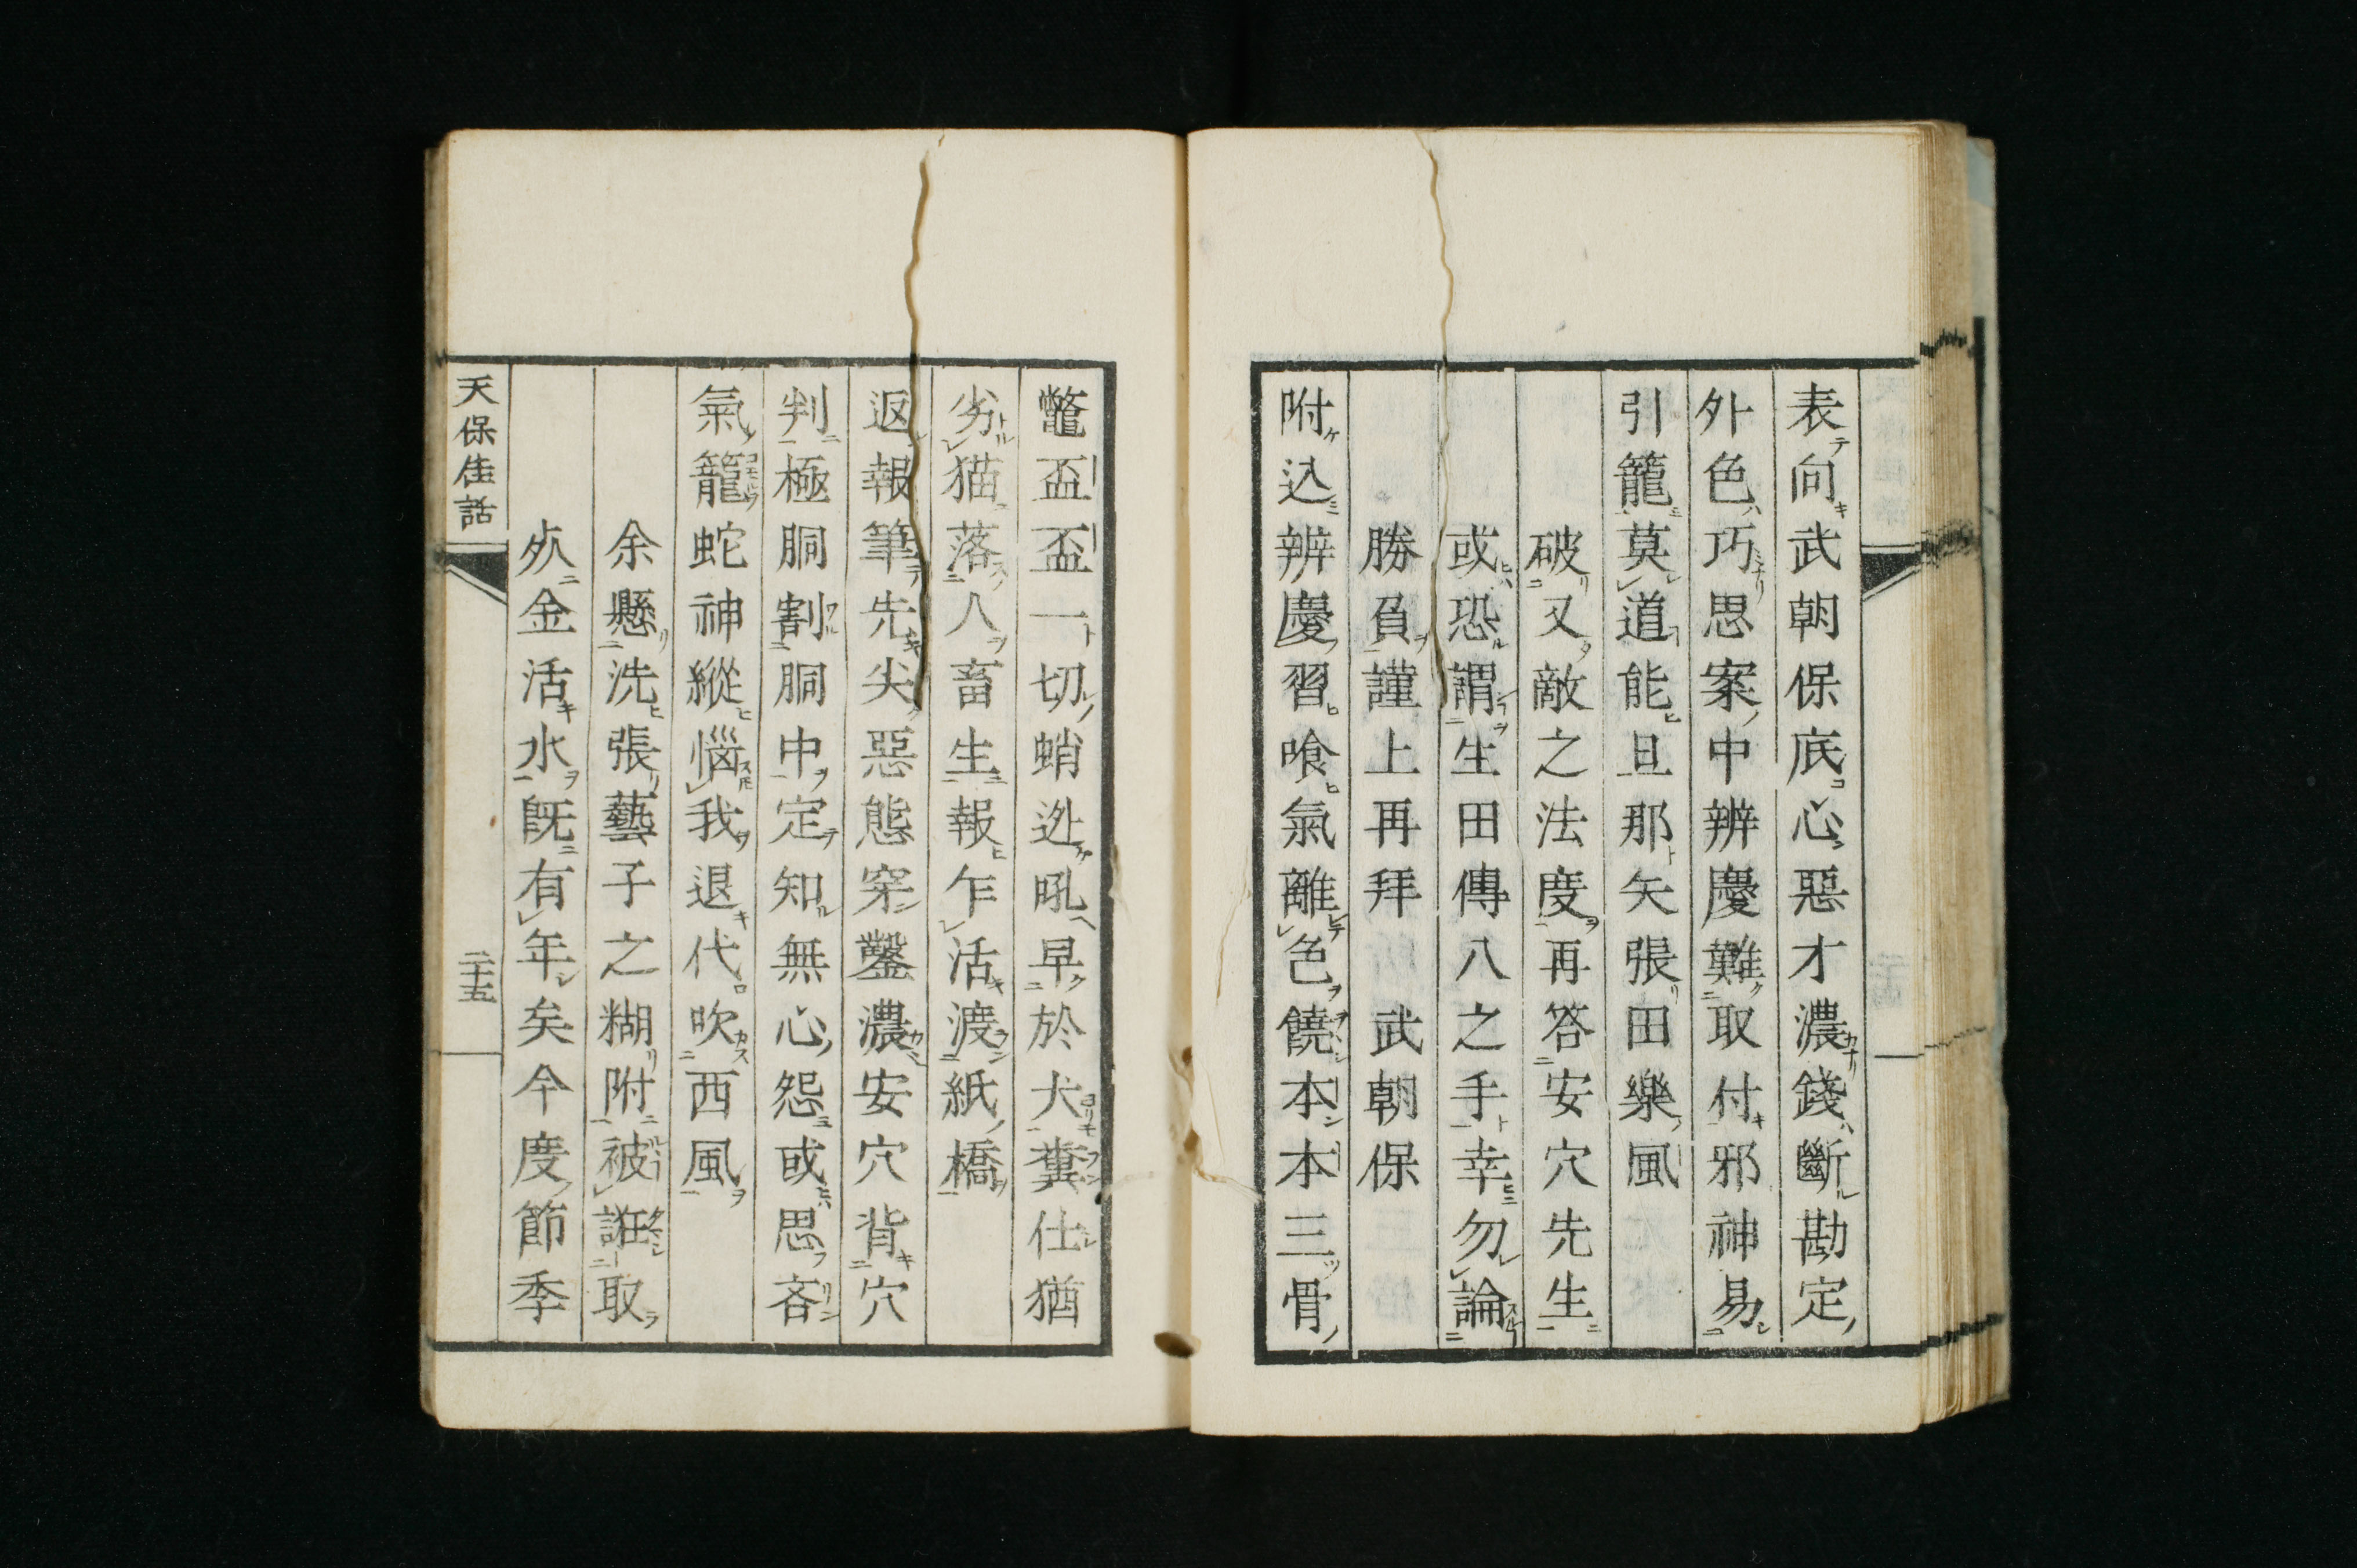 表向武朝保底心惡才濃錢斷勘定
外色巧思案中辨慶難取付邪神易
引籠莫道能旦那矢張田樂風
破又敵之法度再答安穴先生
或恐謂生田傳八之手幸勿論
勝負謹上再拜　武朝保
附込辨慶習喰氣離色饒本本三骨
鼈盃盃一切蛸迯吼早於犬糞仕猶
劣猫落人畜生報乍活渡紙橋
返報筆先尖惡態穿鑿濃安穴背穴
判極胴割胴中定知無心怨或思吝
氣籠蛇神縱惱我退代吹西風
余懸洗張藝子之糊附被誑取
於金活水既有年矣今度節季
天保佳話
二十五